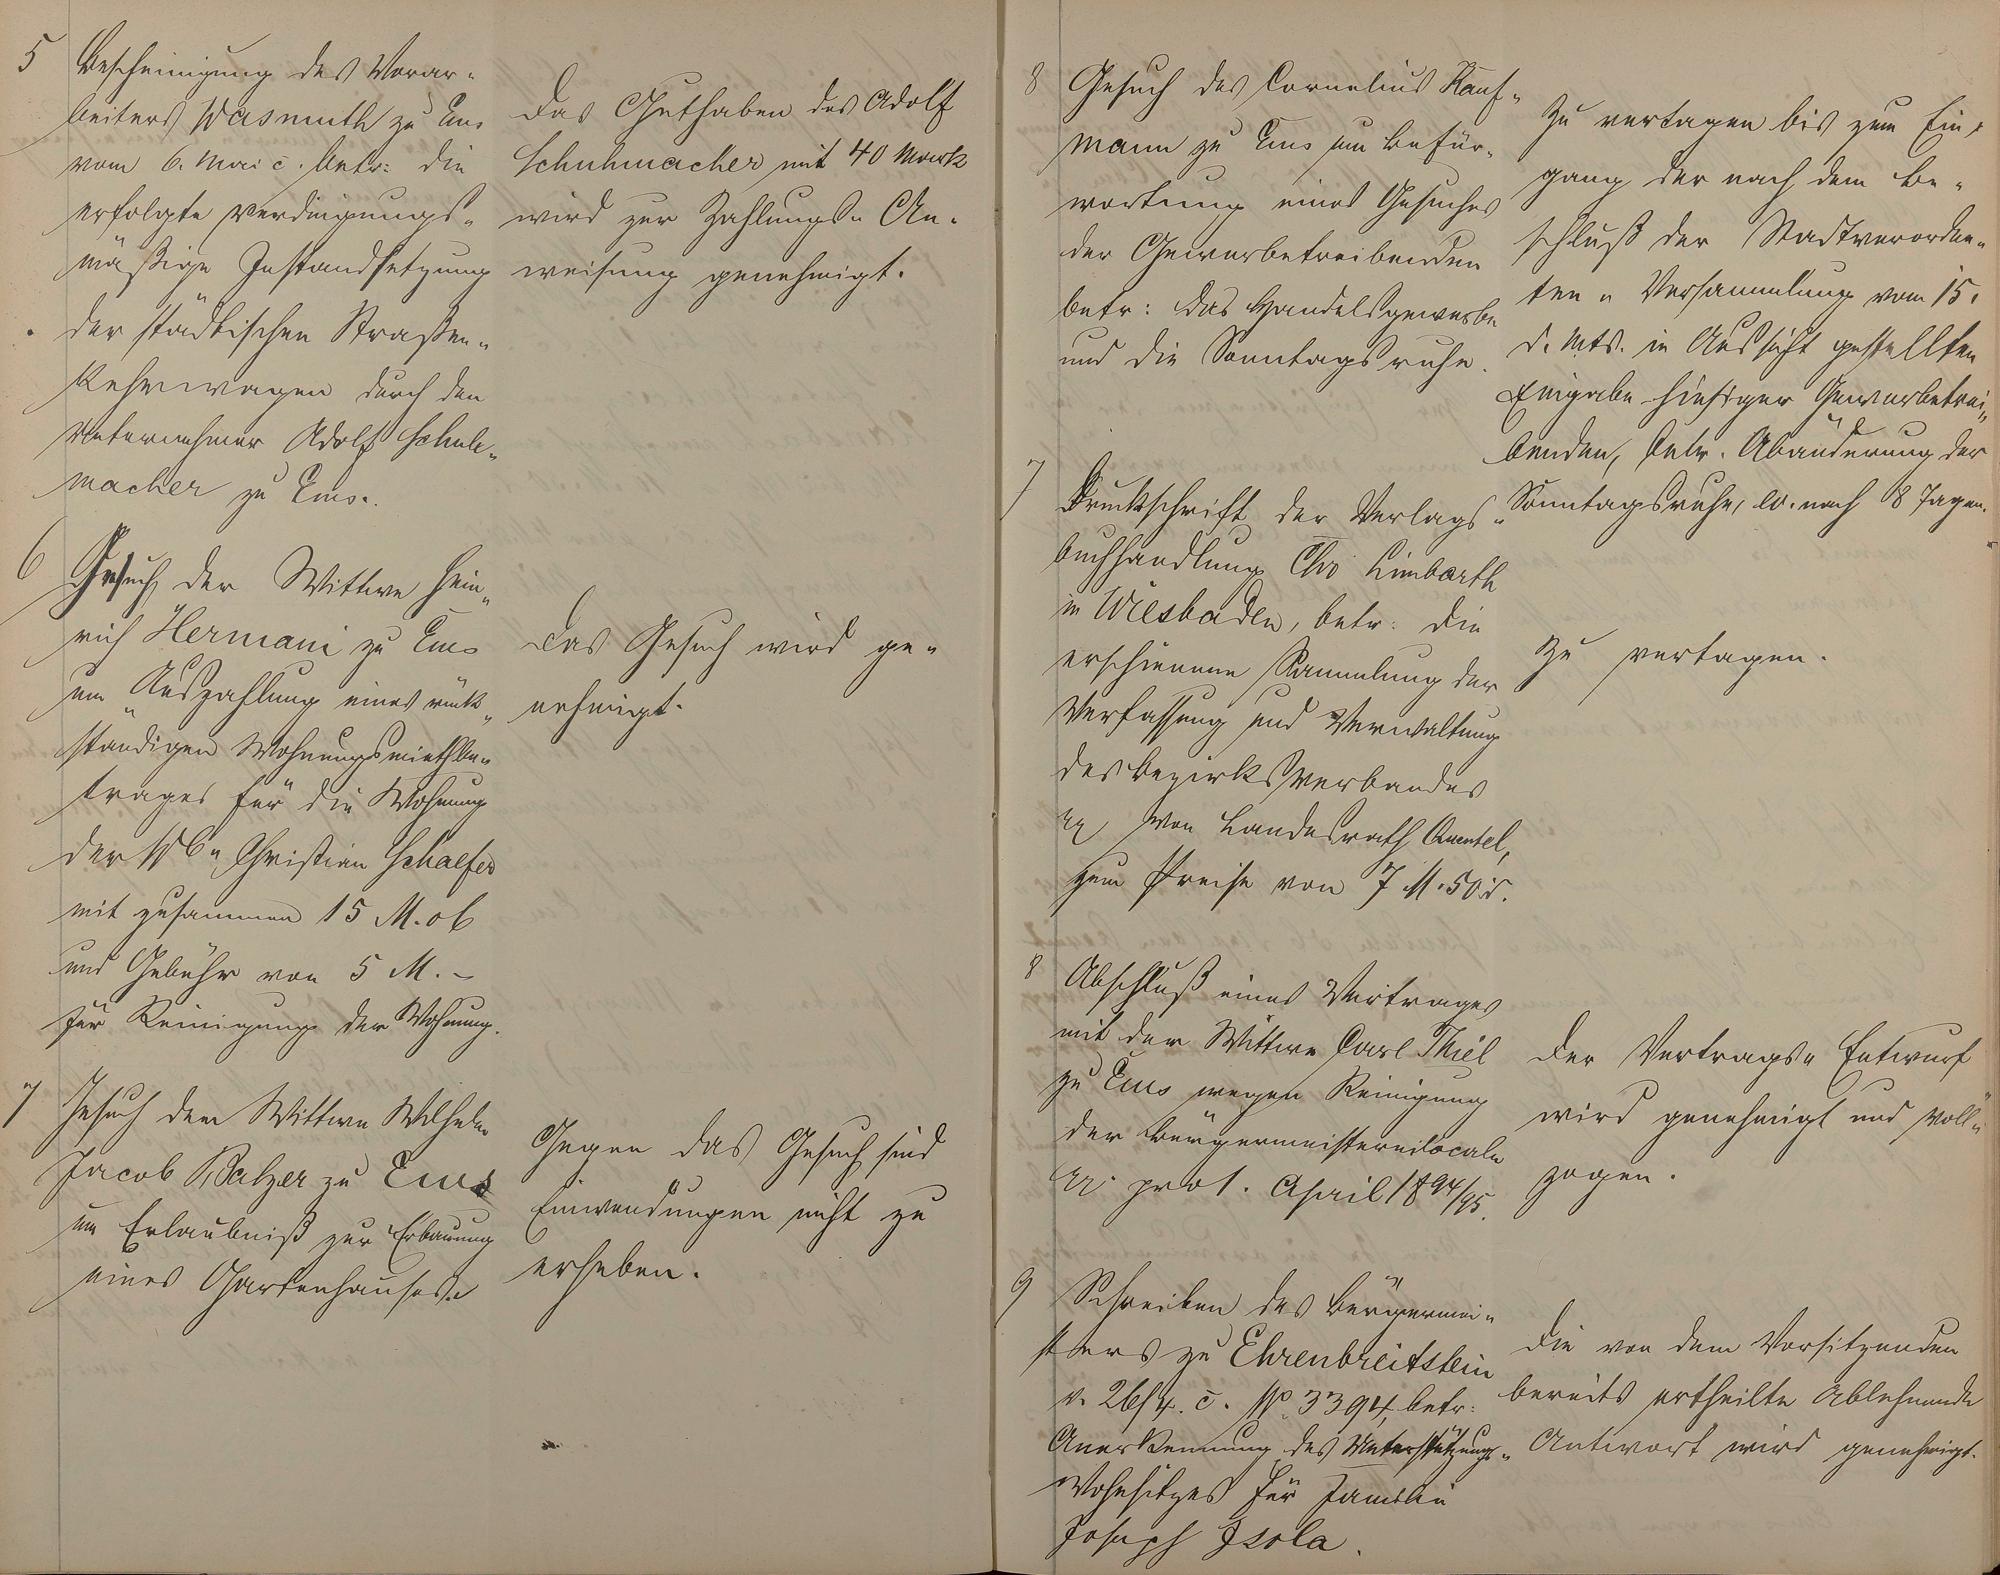 5
Bescheinigung des Vorar-
beiters Wasmuth zu Ems
vom 6. Mai c. betr: die
erfolgte verdingungs-
mäßige Instandsetzung
der städtischen Straßen-
Kehrwagen durch den
Unternehmer Adolf Schuh-
macher zu Ems.
Das Guthaben des Adolf
Schuhmacher mit 40 Mark
wird zur Zahlungs-An-
weisung genehmigt.
6
Gesuch der Wittwe Hein-
rich Hermani zu Ems
um Auszahlung eines rück-
ständigen Wohnungsmiethbe-
trages für die Wohnung
der Wb. Christian Schaefer
mit zusammen 15 M. 06
und Gebühr von 5 M. –
für Reinigung der Wohnung.
Das Gesuch wird ge-
nehmigt.
7
Gesuch der Wittwe Wilhelm
Jacob Balzer zu Ems
um Erlaubniß zur Erbauung
eines Gartenhauses.
Gegen das Gesuch sind
Einwendungen nicht zu
erheben.
8
Gesuch des Cornelius Kauf-
mann zu Ems um Befür-
wortung eines Gesuches
der Gewerbetreibenden
betr: das Handelsgewerbe
und die Sonntagsruhe.
Zu vertagen bis zum Ein-
gang der nach dem Be-
schluß der Stadtverordne-
ten-Versammlung vom 15.
d. Mts. in Aussicht gestellten
Eingabe hiesiger Gewerbetrei-
benden, betr. Abänderung der
Sonntagsruhe, ev. nach 8 Tagen.
7
Druckschrift der Verlags-
buchhandlung Chr Limbarth
in Wiesbaden, betr: die
erschienene Sammlung der
Verfassung und Verwaltung
des Bezirksverbandes
von Landesrath Quentel,
zum Preise von 7 M. 50 d.
Zu vertagen.
8
Abschluß eines Vertrages
mit der Wittwe Carl Thiel
zu Ems wegen Reinigung
der Bürgermeistereilocale
pro 1. April 1894/95.
Der Vertrags-Entwurf
wird genehmigt und voll-
zogen.
9
Schreiben des Bürgermei-
sters zu Ehrenbreitstein
v. 26/4. c. № 3394, betr:
Anerkennung des Unterstützungs-
Wohnsitzes für Familie
Joseph Isola.
Die von dem Vorsitzenden
bereits ertheilte ablehnende
Antwort wird genehmigt.